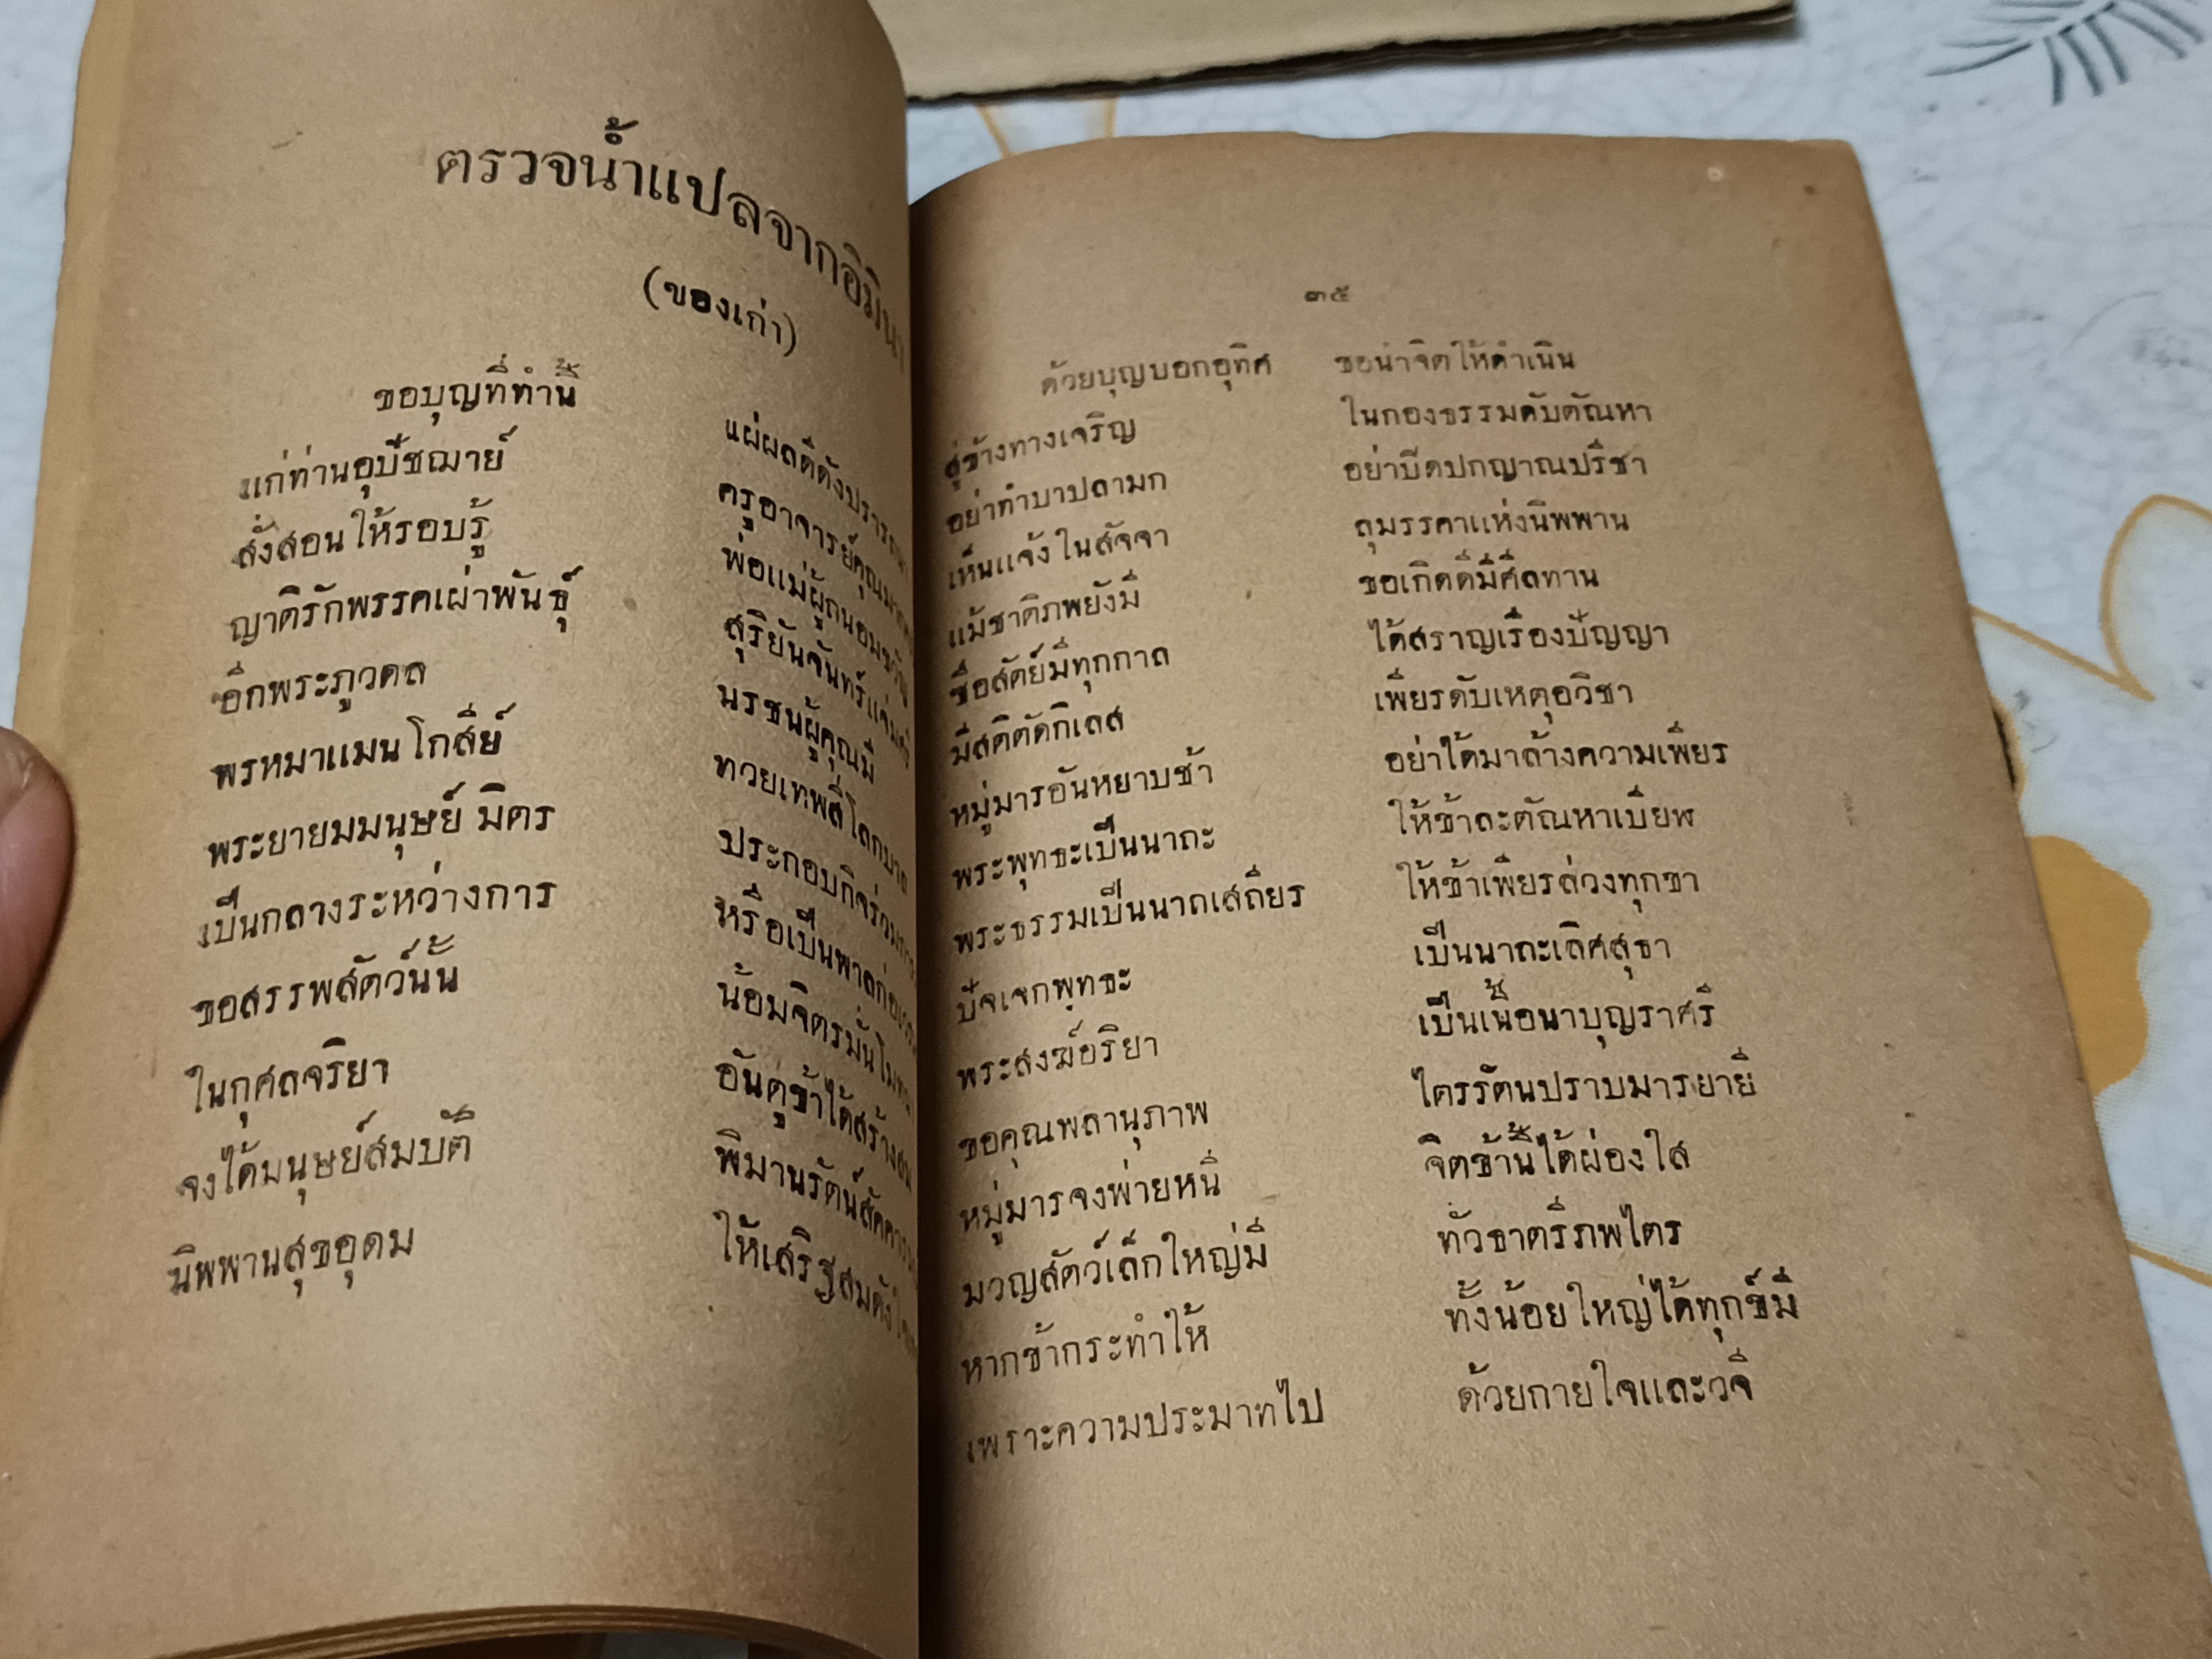 ตรวจน้ำแปลจากอิมินา
(ของเก่า)
ขอบุญที่ทำนี้ แผ่ผลดีดังปรารถนา
แก่ท่านอุปัชฌาย์ ครูอาจารย์คุณมาก
สั่งสอนให้รอบรู้ พ่อแม่ผู้ถนอมขวัญ
ญาติรักพรรคเผ่าพันธุ์ สุริยันจันทร์แจ่ม
อีกพระภูวดล นรชนผู้คุณมี
พรหมาแมนโกสีย์ ทวยเทพสี่โลกบาล
พระยายมมนุษย์ มิตร ประกอบกิจร่วม
เป็นกลางระหว่างการ หรือเป็นพาลก่อ
ขอสรรพสัตว์นั้น น้อมจิตรมั่นใน
ในกุศลจริยา อันตูข้าได้สร้าง
จงได้มนุษย์สมบัติ พิมานรัตน์สัคคา
นิพพานสุขอุดม ให้เสริฐสมดัง
๓๕
ด้วยบุญบอกอุทิศ ขอนำจิตให้ดำเนิน
สู่ข้างทางเจริญ ในกองธรรมดับตัณหา
อย่าทำบาปลามก อย่าปีดปกญาณปรีชา
เห็นแจ้งในสัจจา ลุมรรคาแห่งนิพพาน
แม้ชาติภพยังมี ขอเกิดดีมีศีลทาน
ซื่อสัตย์มีทุกกาล ได้สราญเรืองปัญญา
มีสติตัดกิเลส เพียรดับเหตุอวิชา
หมู่มารอันหยาบช้า อย่าได้มาล้างความเพียร
พระพุทธะเป็นนาถะ ให้ข้าละตัณหาเบียฬ
พระธรรมเป็นนาถเสถียร ให้ข้าเพียรล่วงทุกขา
ปัจเจกพุทธะ เป็นนาถะเลิศสุธา
พระสงฆ์อริยา เป็นเนื้อนาบุญราศรี
ขอคุณพลานุภาพ ไตรรัตนปราบมารยายี
หมู่มารจงพ่ายหนี จิตข้านี้ได้ผ่องใส
มวญสัตว์เล็กใหญ่มี ทั่วธาตรีภพไตร
หากข้ากระทำให้ ทั้งน้อยใหญ่ได้ทุกข์มี
เพราะความประมาทไป ด้วยกายใจและวจี